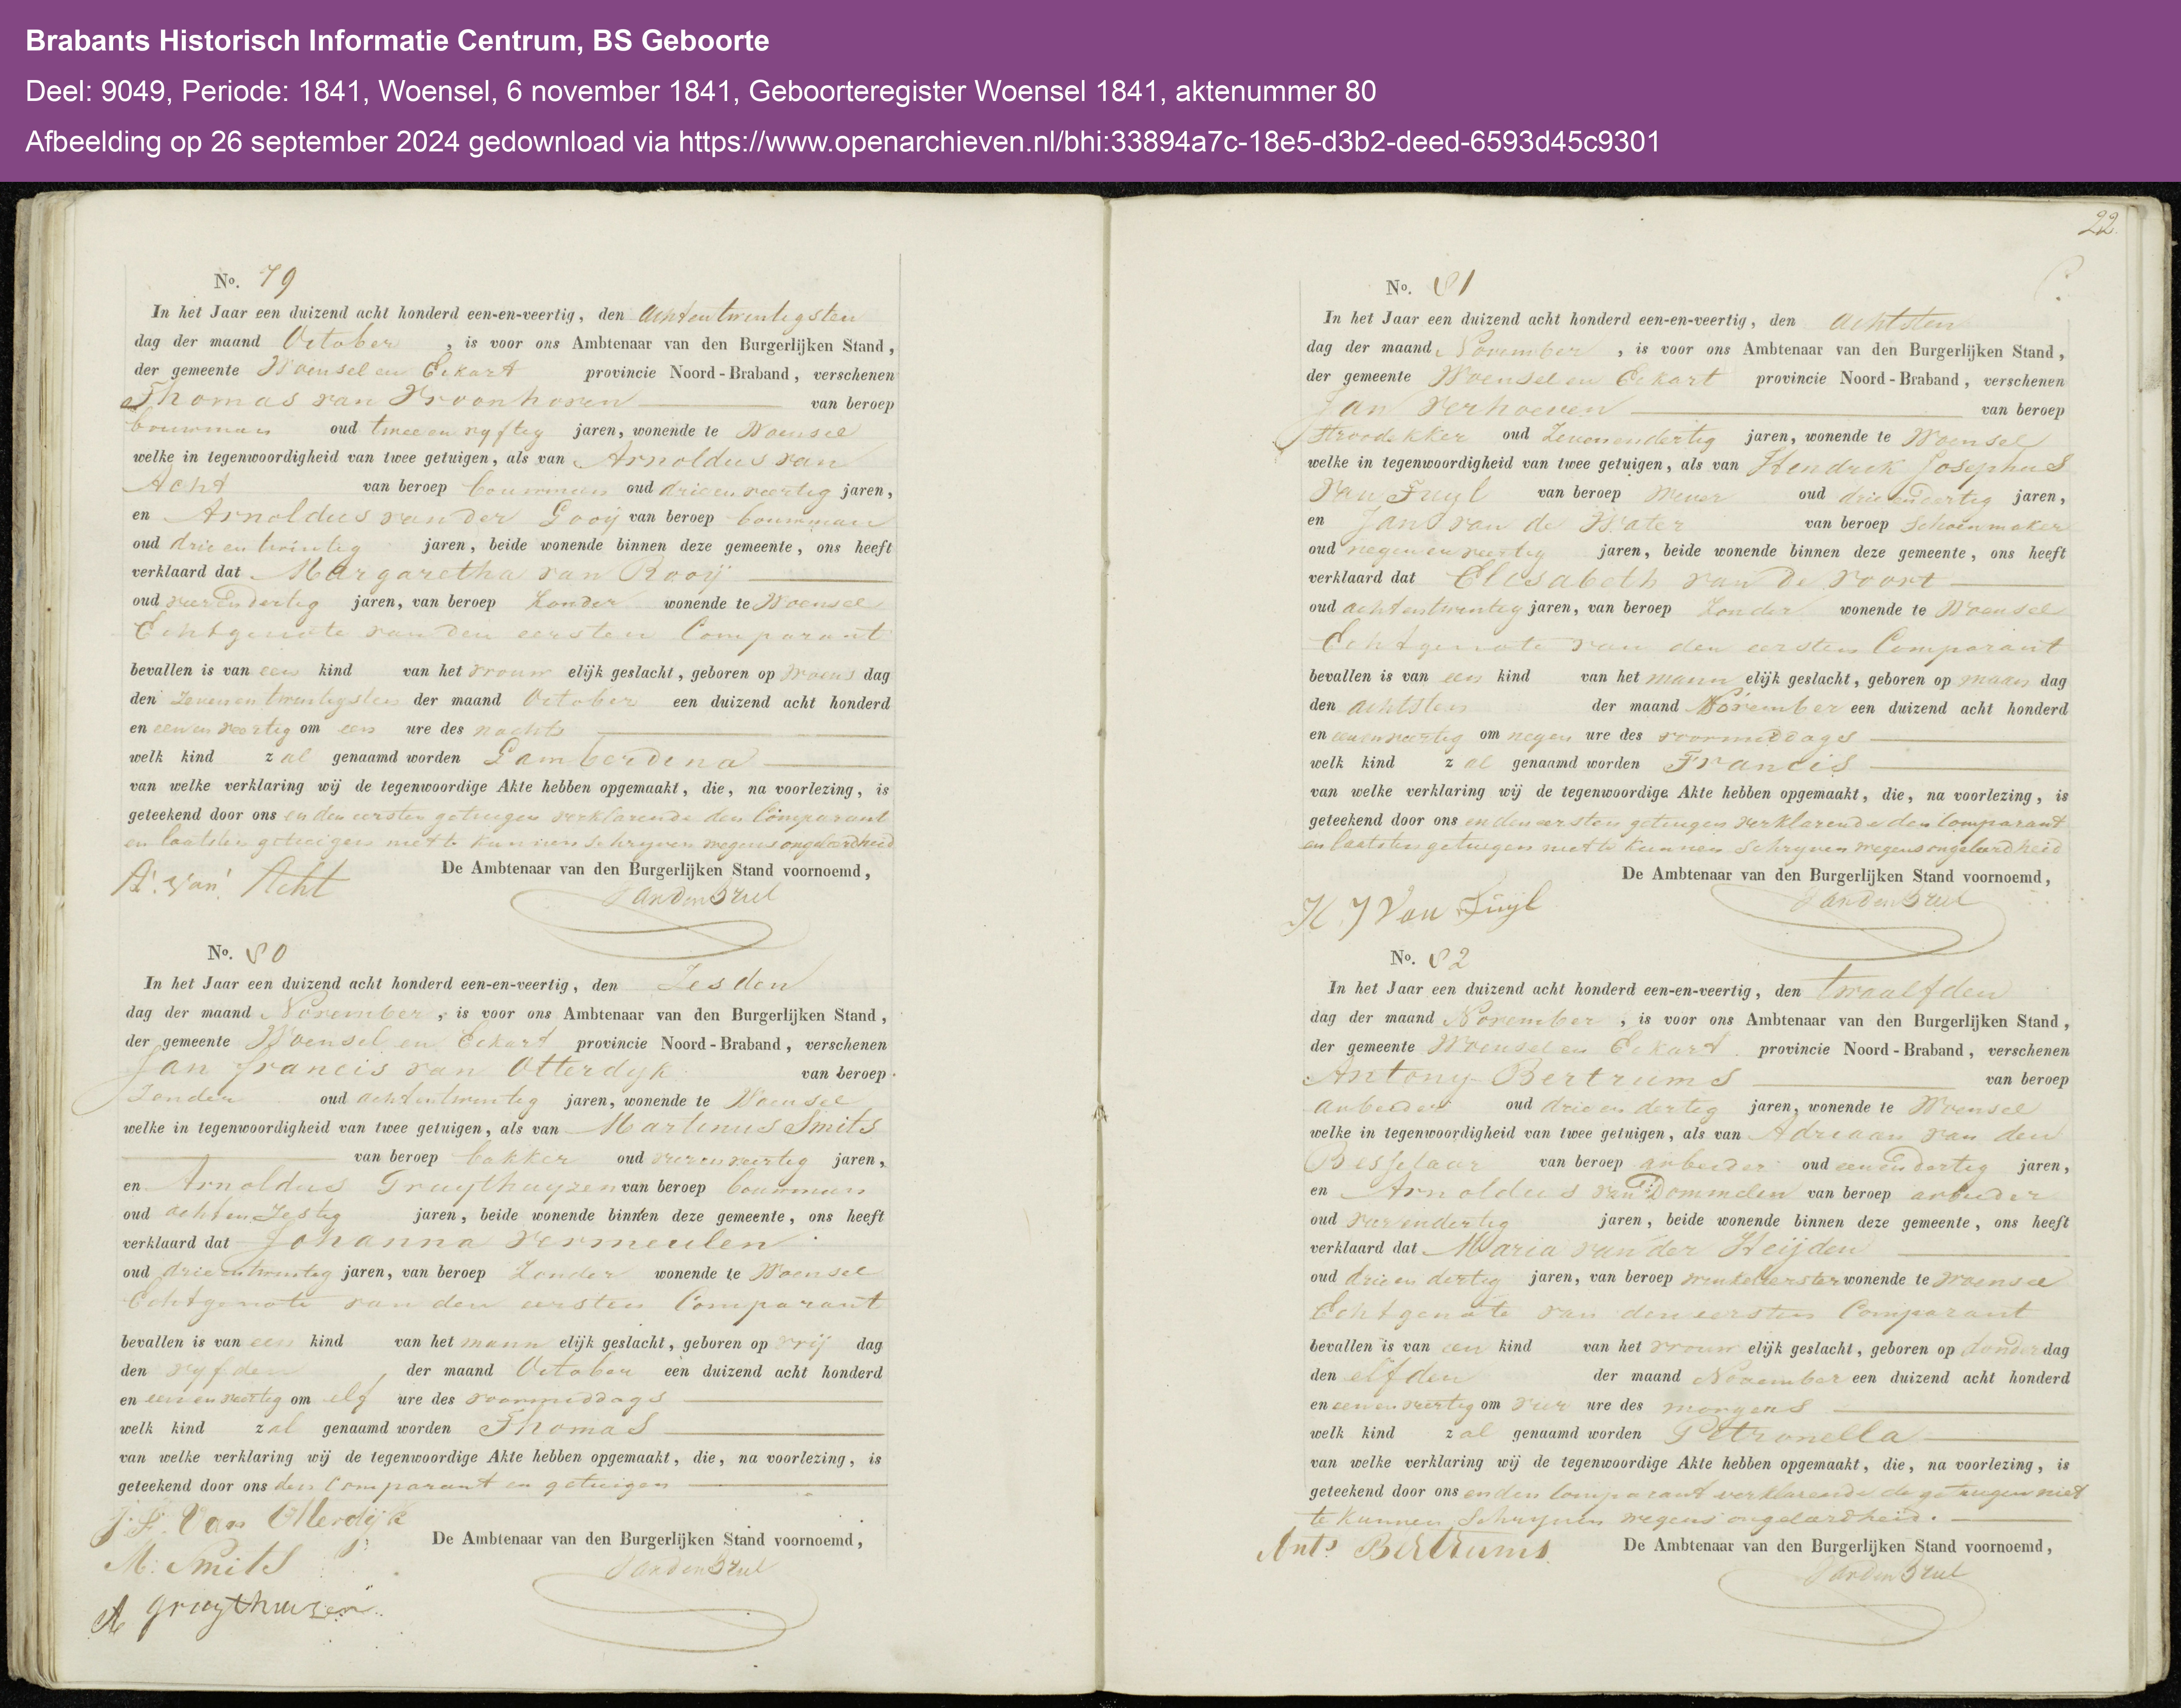 Brabants Historisch Informatie Centrum, BS Geboorte
Deel: 9049, Periode: 1841, Woensel, 6 november 1841, Geboorteregister Woensel 1841, aktenummer 80
Afbeelding op 26 september 2024 gedownload via https://www.openarchieven.nl/bhi:33894a7c-18e5-d3b2-deed-6593d45c9301
No. 79
In het Jaar een duizend acht honderd een-en-veertig, den achtentwintigsten
dag der maand October , is voor ons Ambtenaar van den Burgerlijken Stand,
der gemeente Woensel en Eckart provincie Noord-Braband, verschenen
Thomas van Kroonhoven van beroep
bouwman oud twee en vyftig jaren, wonende te Woensel
welke in tegenwoordigheid van twee getuigen, als van Arnoldus van
Acht van beroep bouwman oud drie en veertig jaren,
en Arnoldus van der Gooij van beroep bouwman
oud drie en twintig jaren, beide wonende binnen deze gemeente, ons heeft
verklaard dat Margaretha van Rooij
oud vier en dertig jaren, van beroep Zonder wonende te Woensel
Echtgenote van den eersten Comparant
bevallen is van een kind van het vrouw elijk geslacht, geboren op woens dag
den zevenentwintigsten der maand October een duizend acht honderd
en een en veertig om een ure des nachts
welk kind zal genaamd worden Lamberdina
van welke verklaring wij de tegenwoordige Akte hebben opgemaakt, die, na voorlezing, is
geteekend door ons en den eersten getuigen verklarende den Comparant
en laatsten getuigen niet te kunnen schryven wegens ongeleerdheid
De Ambtenaar van den Burgerlijken Stand voornoemd,
A. van Acht
VandenBrul
No. 80
In het Jaar een duizend acht honderd een-en-veertig, den Zesden
dag der maand November , is voor ons Ambtenaar van den Burgerlijken Stand,
der gemeente Woensel en Eckart provincie Noord-Braband, verschenen
Jan Francis van Otterdyk van beroep
Zonder oud achtentwintig jaren, wonende te Woensel
welke in tegenwoordigheid van twee getuigen, als van Martinus Smits
van beroep bakker oud vier en veertig jaren,
en Arnoldus Gruythuyzen van beroep bouwman
oud acht en Zestig jaren, beide wonende binnen deze gemeente, ons heeft
verklaard dat Johanna Vermeulen
oud drie en twintig jaren, van beroep Zonder wonende te Woensel
Echtgenote van den eersten Comparant
bevallen is van een kind van het mann elijk geslacht, geboren op vrij dag
den vyfden der maand October een duizend acht honderd
en een en veertig om elf ure des voormiddags
welk kind zal genaamd worden Thomas
van welke verklaring wij de tegenwoordige Akte hebben opgemaakt, die, na voorlezing, is
geteekend door ons den Comparant en getuigen
J. F. Van Otterdijk
De Ambtenaar van den Burgerlijken Stand voornoemd,
M. Smits
VandenBrul
A gruythuizen
22.
No. 81
In het Jaar een duizend acht honderd een-en-veertig, den achtsten
dag der maand November , is voor ons Ambtenaar van den Burgerlijken Stand,
der gemeente Woensel en Eckart provincie Noord-Braband, verschenen
Jan Verhoeven van beroep
Stroodekker oud Zevenendertig jaren, wonende te Woensel
welke in tegenwoordigheid van twee getuigen, als van Hendrik Josephus
van Tuyl van beroep wever oud drie en dertig jaren,
en Jan van de Water van beroep Schoenmaker
oud negen en veertig jaren, beide wonende binnen deze gemeente, ons heeft
verklaard dat Elisabeth van de voort
oud achtentwintig jaren, van beroep Zonder wonende te Woensel
Echtgenote van den eersten Comparant
bevallen is van een kind van het mann elijk geslacht, geboren op maan dag
den achtsten der maand November een duizend acht honderd
en een en veertig om negen ure des voormiddags
welk kind zal genaamd worden Francis
van welke verklaring wij de tegenwoordige Akte hebben opgemaakt, die, na voorlezing, is
geteekend door ons en den eersten getuigen verklarende den Comparant
en laatsten getuigen niet te kunnen schryven wegens ongeleerdheid
De Ambtenaar van den Burgerlijken Stand voornoemd,
H J Van Tuyl
VandenBrul
No. 82
In het Jaar een duizend acht honderd een-en-veertig, den twaalfden
dag der maand November , is voor ons Ambtenaar van den Burgerlijken Stand,
der gemeente Woensel en Eckart provincie Noord-Braband, verschenen
Antony Bertrums van beroep
arbeider oud drie en dertig jaren, wonende te Woensel
welke in tegenwoordigheid van twee getuigen, als van Adriaan van den
Besselaar van beroep arbeider oud een en dertig jaren,
en Arnoldus van Dommelen van beroep arbeider
oud vier en dertig jaren, beide wonende binnen deze gemeente, ons heeft
verklaard dat Maria van der Heijden
oud drie en dertig jaren, van beroep winkelierster wonende te Woensel
Echtgenote van den eersten Comparant
bevallen is van een kind van het vrouw elijk geslacht, geboren op donder dag
den elfden der maand November een duizend acht honderd
en een en veertig om vier ure des morgens
welk kind zal genaamd worden Petronella
van welke verklaring wij de tegenwoordige Akte hebben opgemaakt, die, na voorlezing, is
geteekend door ons en den Comparant verklarende de getuigen niet
te kunnen Schryven wegens ongeleerdheid.
Ant. Bertrums
De Ambtenaar van den Burgerlijken Stand voornoemd,
VandenBrul